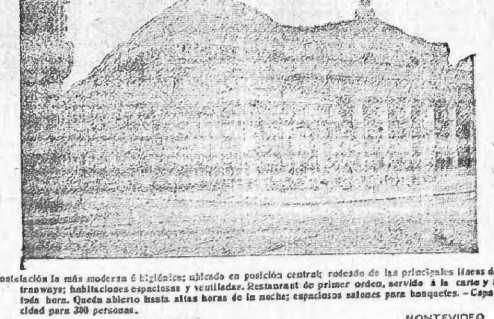 ostelación la más moderna é higiénica; ubicado en posición central; rodeado de las principales líneas d
tranways; habitaciones espaciosas y ventiladas. Restaurant de primer orden, servido á la carte y
toda hora. Queda abierto hasta altas horas de la noche; espaciosos salones para banquetes. – Capa-
cidad para 300 personas.
MONTEVIDEO